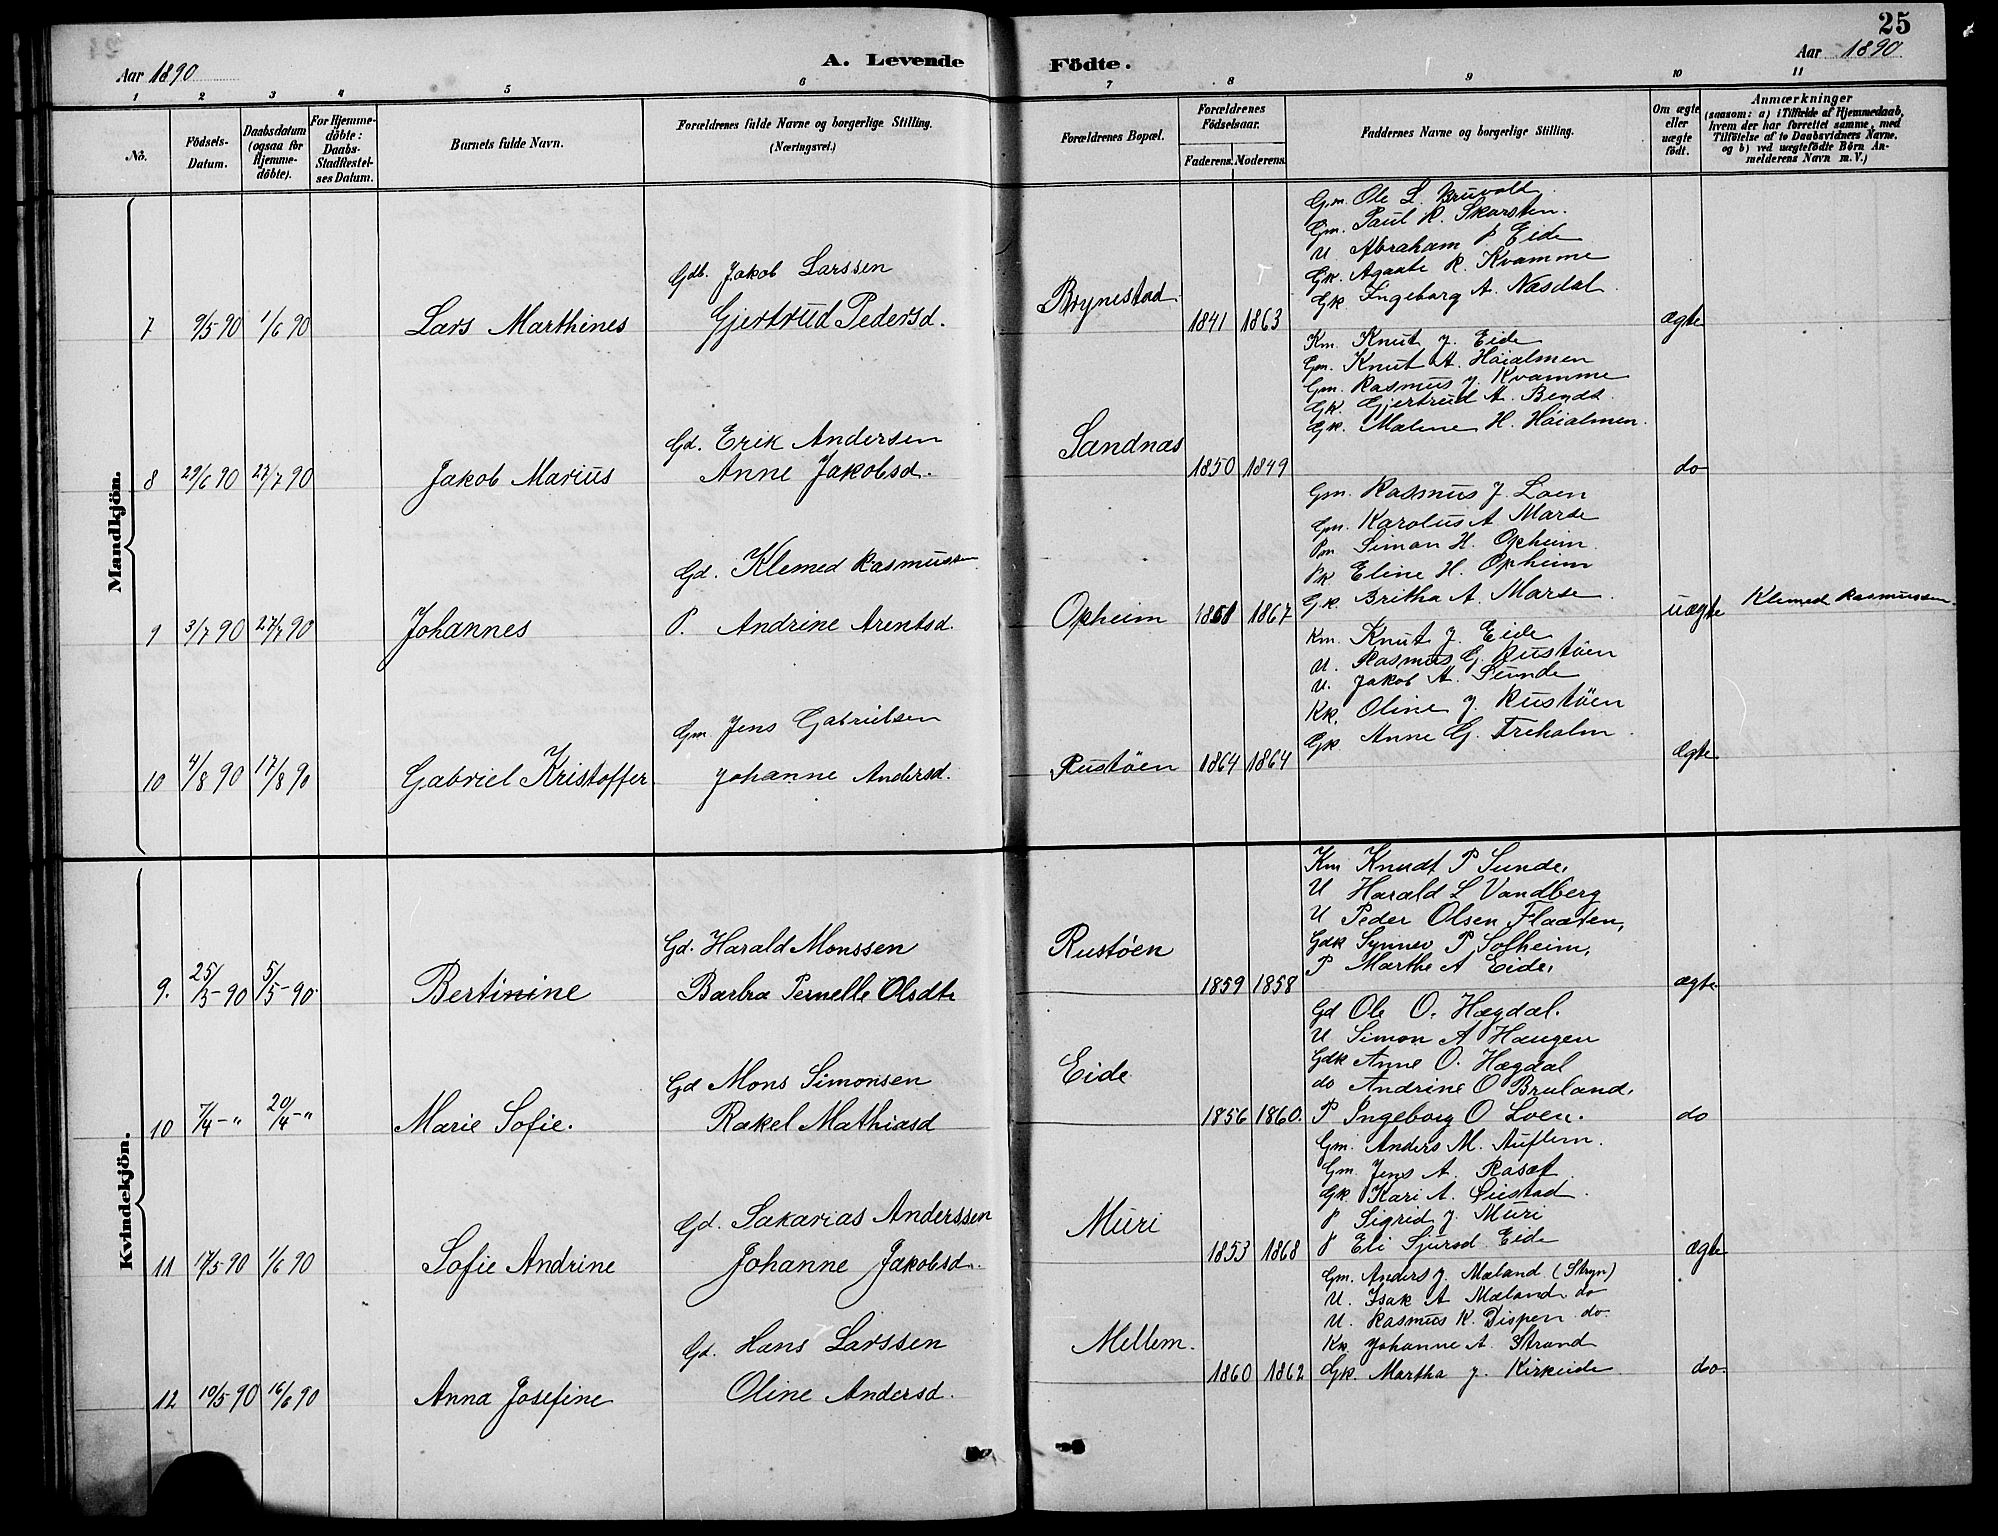 25
Aar 1890
A. Levende Födte.
Aar 1890
1 2 3 4 5 6 7 8 9 10 11
No.
Födsels-Datum.
Daabsdatum (ogsaa for Hjemme-döbte).
For Hjemme-döbte: Daabs-Stadfæstel-ses Datum.
Barnets fulde Navn.
Forældrenes fulde Navne og borgerlige Stilling. (Næringsvei.)
Forældrenes Bopæl.
Forældrenes Födselsaar.
Faderens. Moderens.
Faddernes Navne og borgerlige Stilling.
Om ægte eller uægte födt.
Anmærkninger
(saasom: a) i Tilfælde af Hjemmedaab,
hvem der har forrettet samme, med
Tilföielse af to Daabsvidners Navne,
og b) ved uægtefödte Börn An-
melderens Navn m. V.)
Mandkjön.
Gm. Ole L. Bruvold.
Gm. Paul R. Skarsten.
U. Abraham P. Eide
Gk. Agaate R. Kvamme
Gk. Ingeborg A. Næsdal.
Gdb. Jakob Larssen
7 9/5 90 1/6 90 Lars Marthines Gjertrud Pedersd. Brynestad 1841 1863 ægte
Km. Knut J. Eide
Gm. Knut A. Höialmen
Gm. Rasmus J. Kvamme
Gk. Gjertrud A. Bendt.
Gk. Malene H. Höialmen.
Gd. Erik Andersen
8 29/6 90 27/7 90 Jakob Marius Anne Jakobsd. Sandnas 1850 1849 do
Gm. Rasmus J. Loen
Gm. Karolus A Marse
Pm Simon H. Opheim.
Pk Eline H. Opheim
Gk. Britha A. Marse.
Gd. Klemed Rasmussen
9 3/7 90 27/7 90 Johannes P. Andrine Arentsd. Opheim 1867 uægte Klemed Rasmussen.
Km. Knut J. Eide
U. Rasmus G. Rustöen
U. Jakob A. Sunde
Kk. Oline J. Rustöen
Gk Anne G. Treholm.
Gm. Jens Gabrielsen
10 4/8 90 17/8 90 Gabriel Kristoffer. Johanne Andersd. Rustöen 1864 1864 Ægte
Kvindekjön.
Km Knudt P Sunde.
U Harald L Vandberg
U Peder Olsen Flaaten,
Gdk Synnev P Solheim,
P Marthe A Eide.
Gd. Harald Monssen
9. 25/3-90 5/5-90 Bertinine Barbra Pernelle Olsdtr Rustöen 1859 1858 ægte
Gd Ole O. Hægdal.
U Simon A Haugen
Gdk Anne O. Hægdal
do Andrine O Bruland.
P Ingeborg O Loen.
Gd Mons Simonsen
10 7/4-" 20/4-" Marie Sofie. Rakel Mathiasd Eide 1856 1860. do
Gm. Anders M. Auflem.
Gm. Jens A. Rasat
Gk. Kari A. Öiestad.
P Sigrid J. Muri
P Eli Sjursd. Eide
Gd. Sakarias Anderssen
11 17/5 90 1/6 90 Sofie Andrine Johanne Jakobsd. Muri 1853 1868 ægte
Gm. Anders J. Mæland (Stryn)
U. Isak A Mæland do
U. Rasmus K. Dispen do.
Kk. Johanne A. Strand
Gk. Martha J. Kirkeide.
Gd. Hans Larssen
12 10/5 90 16/6 90 Anna Josefine Oline Andersd. Mellem. 1860 1862 do.